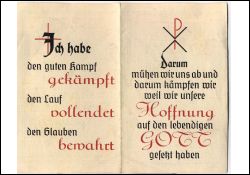 Ich habe
den guten Kampf
gekämpft
den Lauf
vollendet
den Glauben
bewahrt
Darum
mühen wir uns ab und
darum kämpfen wir
weil wir unsere
Hoffnung
auf den lebendigen
GOTT
gesetzt haben